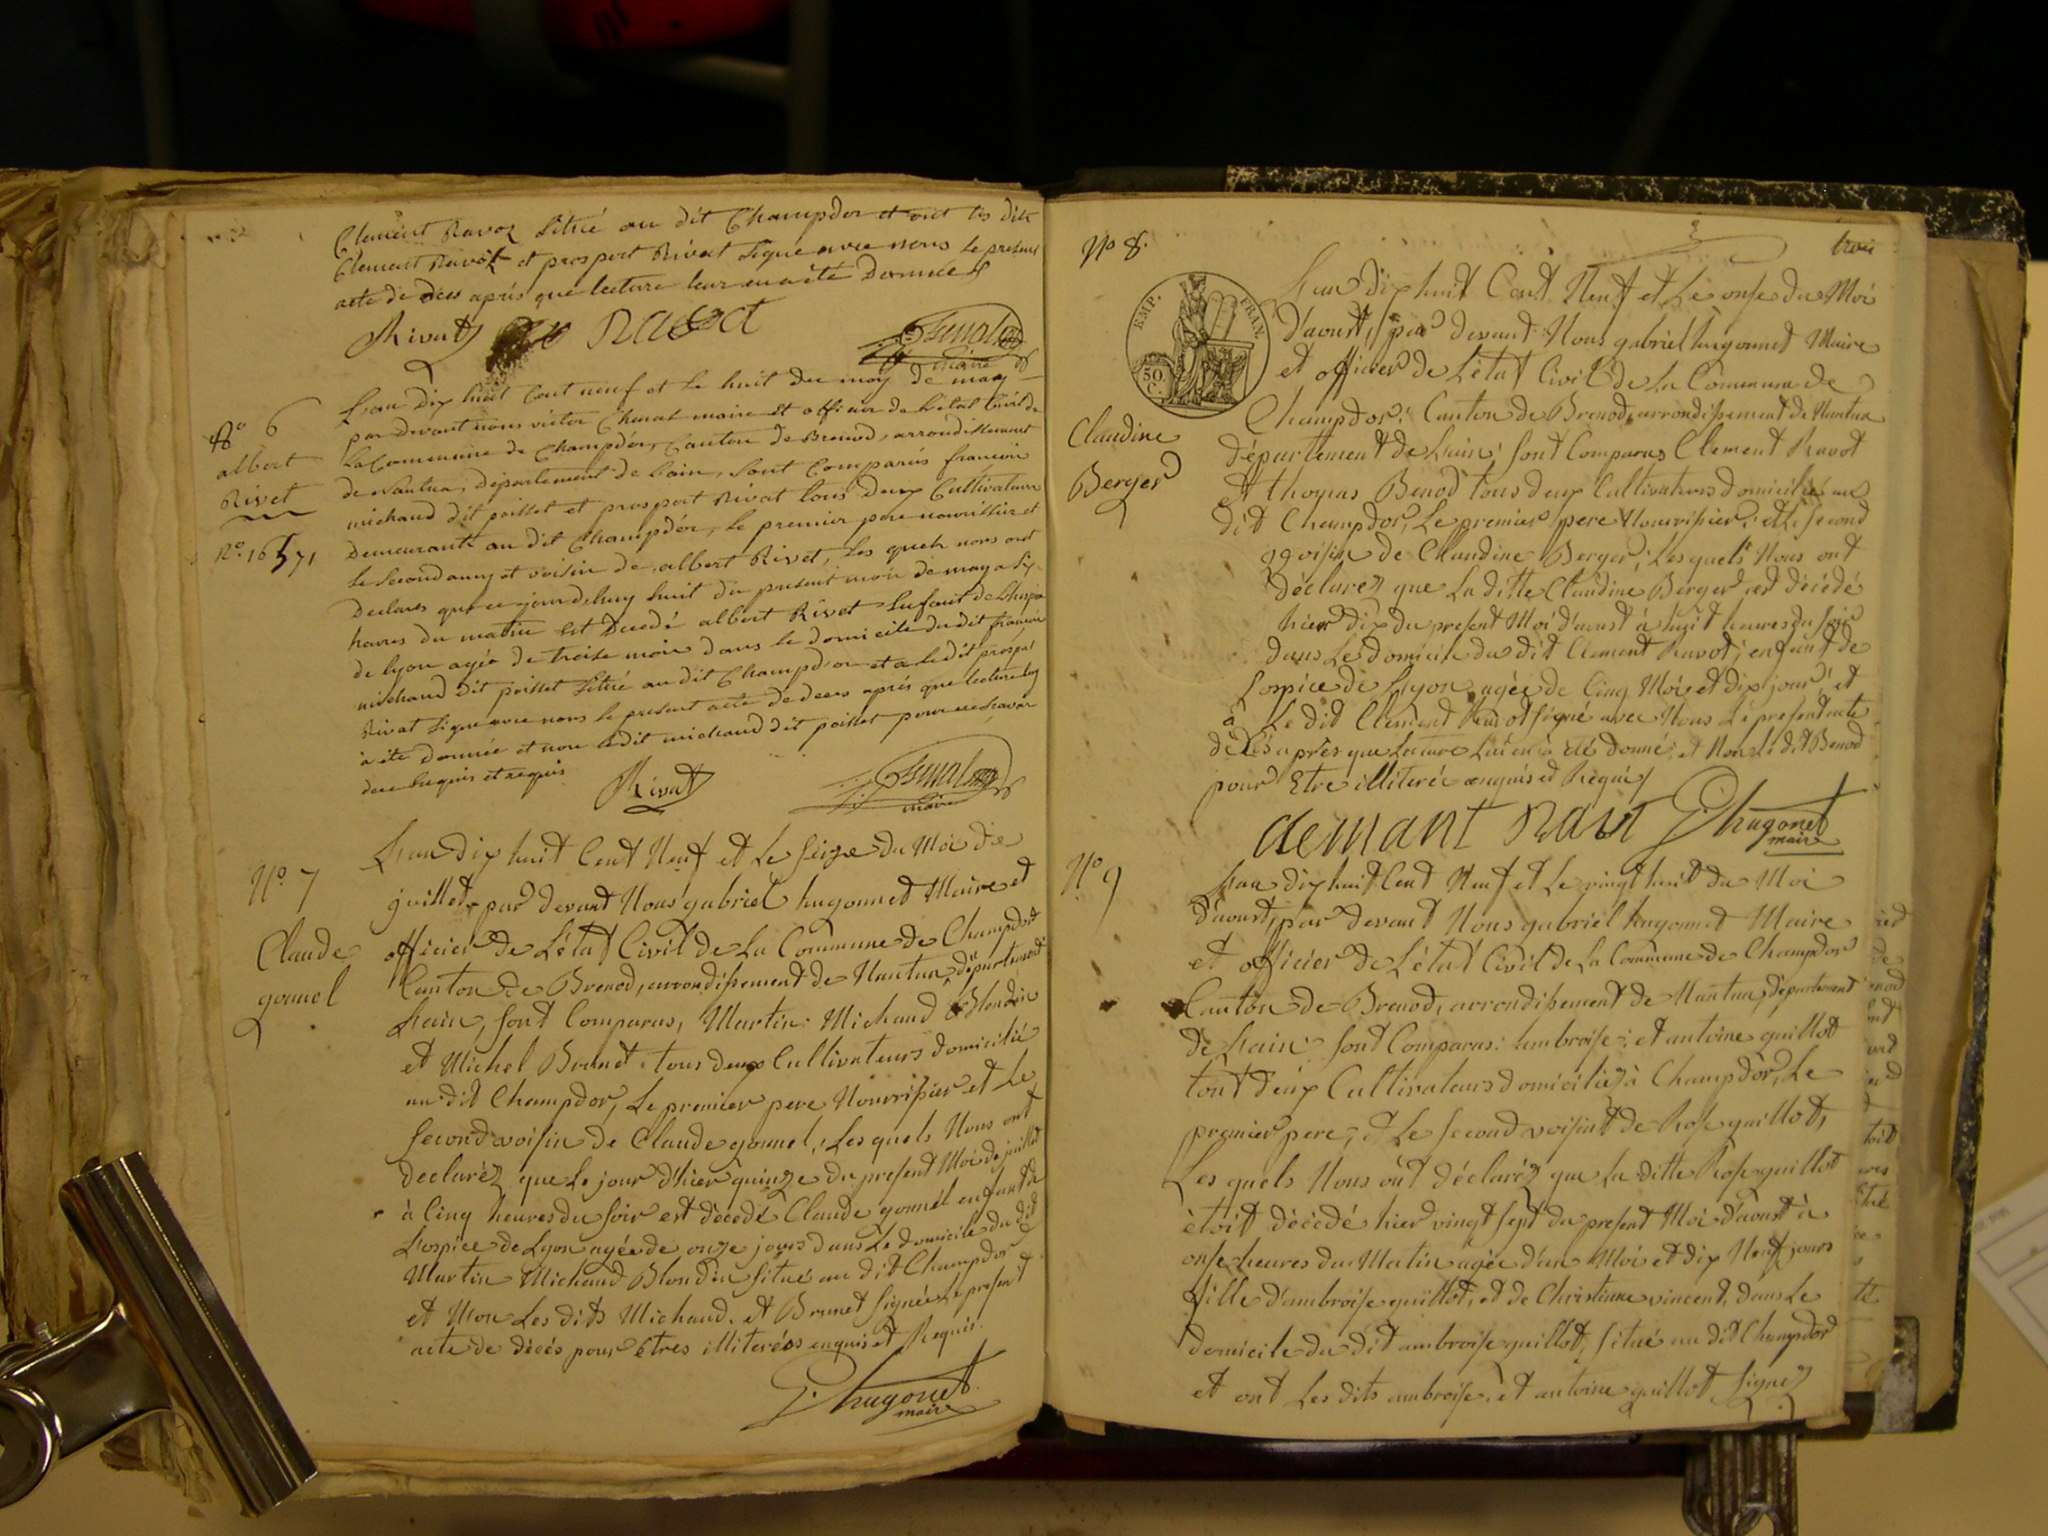 Clement Ravoz Situé au dit Champdor et ont les dits
Clement Ravot et prosport Rivat Signé avec nous le present
acte de deces aprés que lecture leur en a eté donnée
Rivat Ravot
maire
N° 6
albert
Rivet
N° 16571
L'an Dix huit Cent neuf et Le huit du moy de may
par devant nous victor Chenat maire et officier de L'état Civil de
La Commune de Champdor, Canton de Brenod, arrondissement
de Nantua, département de L'ain, Sont Comparus françois
michaud dit poillet et prosport Rivat tous deux Cultivateurs
Demeurants au dit Champdor, Le premier pere nourissier et
Le Second amy et voisin de albert Rivet, Les quels nous ont
Declarés que ce jourdehuy huit du present mois de may a Six
heures du matin est Decedé albert Rivet Enfant de L'hospice
de lyon agée de treise mois dans le domicile du dit françois
michaud dit poillet Situé au dit Champdor et a le dit prospert
Rivat Signé avec nous le present acte de deces aprés que lecture luy
à été donnée et non ledit michaud dit poillet pour ne Savoir
de ce Enquis et requis
Rivat
maire
N° 7
Claude
gonnel
L'an dix huit Cent Neuf et Le Seize du Moi de
juillet, par devant Nous gabriel hugonnet Maire et
officier de L'état Civil de La Commune de Champdor
Canton de Brenod, arrondissement de Nantua, département
L'ain, Sont Comparus, Martin Michaud Blondin
et Michel Brunet tous deux Cultivateurs domicilié
au dit Champdor, Le premier pere Nourrissier et Le
Second voisin de Claude gonnel, Les quels Nous ont
declaréz que Le jour d'hier quinze du present Moi de juillet
à Cinq heures du Soir est décedé Claude gonnel enfant de
L'ospice de Lyon agée de onze jours dans Le domicile du dit
Martin Michaud Blondin Situé au dit Champdor
et Non Les dits Michaud et Brunet Signée Le present
acte de décés pour Etres illiterés enquis et Requis
G. hugonet
maire
3
trois
N° 8.
EMP. FRAN.
50
C.
Claudine
Berger
L'an dix huit Cent Neuf et Le onse du Moi
D'aoust, par devant Nous gabriel hugonnet Maire
et officier de L'état Civil de La Commune de
Champdor, Canton de Brenod, arrondissement de Nantua
département de L'ain, Sont Comparus Clement Ravot
et thomas Benod tous deux Cultivateurs domiciliés au
dit Champdor, Le premier pere Nourrissier, et Le Second
voisin de Claudine Berger, Les quels Nous ont
déclarez que La ditte Claudine Berger est décédé
hier dix du present Moi d'aoust à huit heures du Soir
dans Le domicile du dit Clement Ravot, enfant de
L'ospice de Lyon agée de Cinq Moi et dix jour, et
à Le dit Clement Ravot Signé avec Nous Le present acte
décés aprés que Lecture Lui en à été donné, et Non Le dit Benod
pour Etre illiteré enquis et Requis
clemant Ravot G. hugonet
maire
N° 9
L'an dix huit Cent Neuf et Le vingt huit du Moi
D'aoust, par devant Nous gabriel hugonnet Maire
et officier de L'état Civil de La Commune de Champdor
Canton de Brenod, arrondissement de Nantua, département
de L'ain, Sont Comparus, Ambroise, et antoine guillot
tout deux Cultivateurs domiciliez à Champdor, Le
premier pere, et Le Second voisint de Rose guillot,
Les quels Nous ont déclaréz que La ditte Rose guillot
étoit décédé hier vingt Sept du present Moi D'aoust à
onse heures du Matin agée d'un Moi et dix Neuf jours
fille d'ambroise guillot, et de Christinne vincent, dans Le
domicile du dit ambroise guillot, Situé au dit Champdor
et ont Les dits ambroise et antoine guillot Signez